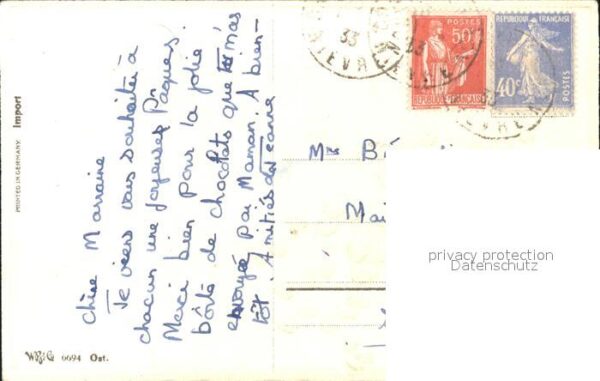 Chère Marraine
Je viens vous souhaiter à
chacun une Joyeuses Pâques
Merci bien pour la jolie
boîte de chocolats que tu m'as
envoyée par Maman. A bien-
tôt. Amitiés de Jeanne
PRINTED IN GERMANY. Import
6694 Ost.
33
NIEVRE
POSTES
50c
REPUBLIQUE FRANÇAISE
REPUBLIQUE FRANÇAISE
40c
POSTES
NIEVRE
Mme B
Mai
privacy protection
Datenschutz